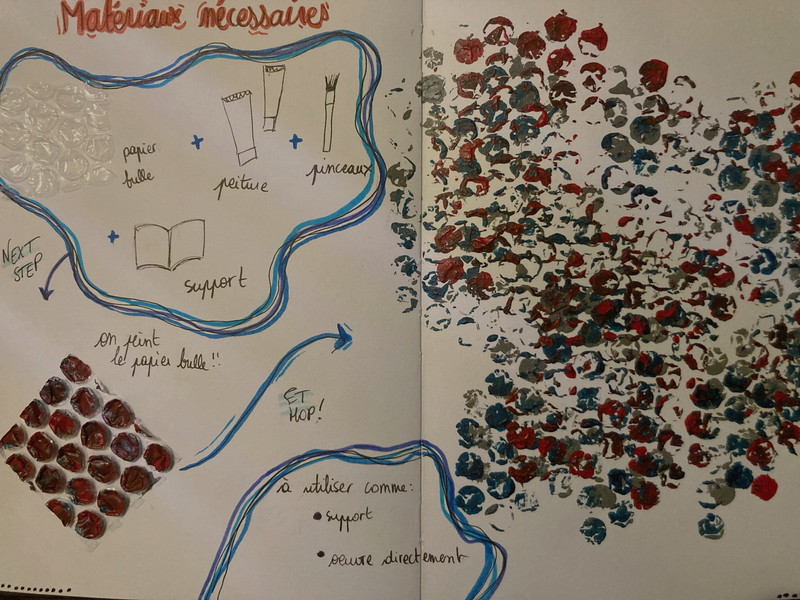 Matériaux nécessaires
papier
bulle
+
peiture
+
pinceaux
+
support
NEXT
STEP
on peint
le papier bulle!!
ET
HOP!
à utiliser comme:
• support
• oeuvre directement